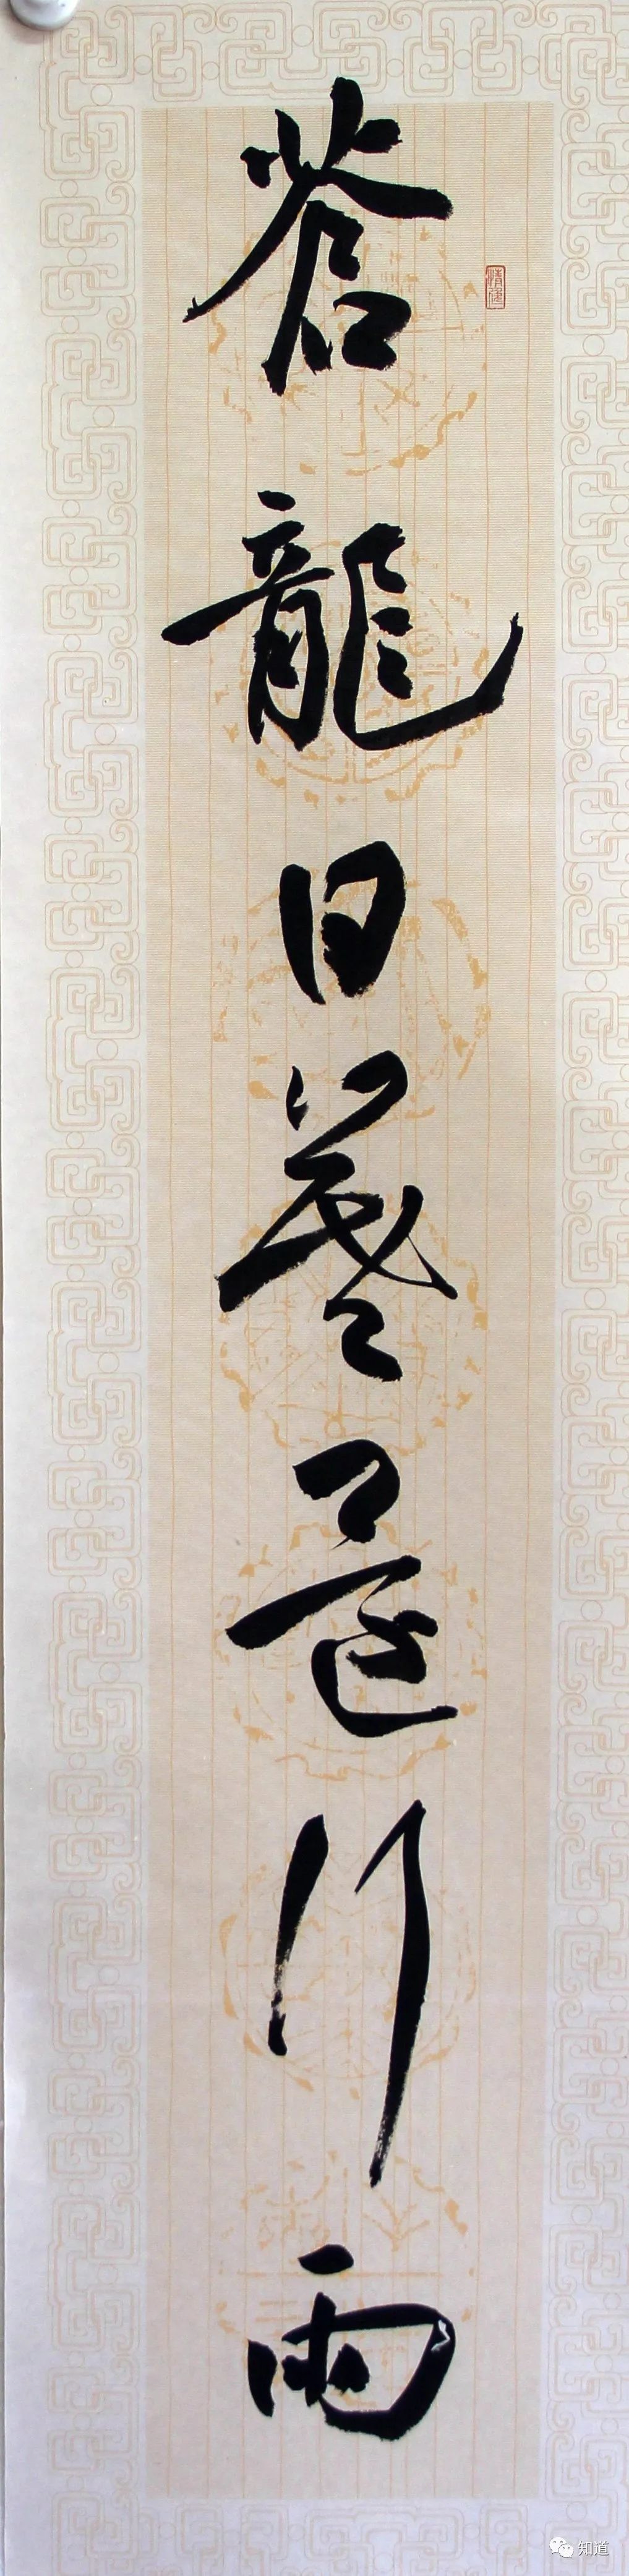 蒼龍日暮還行雨
知道